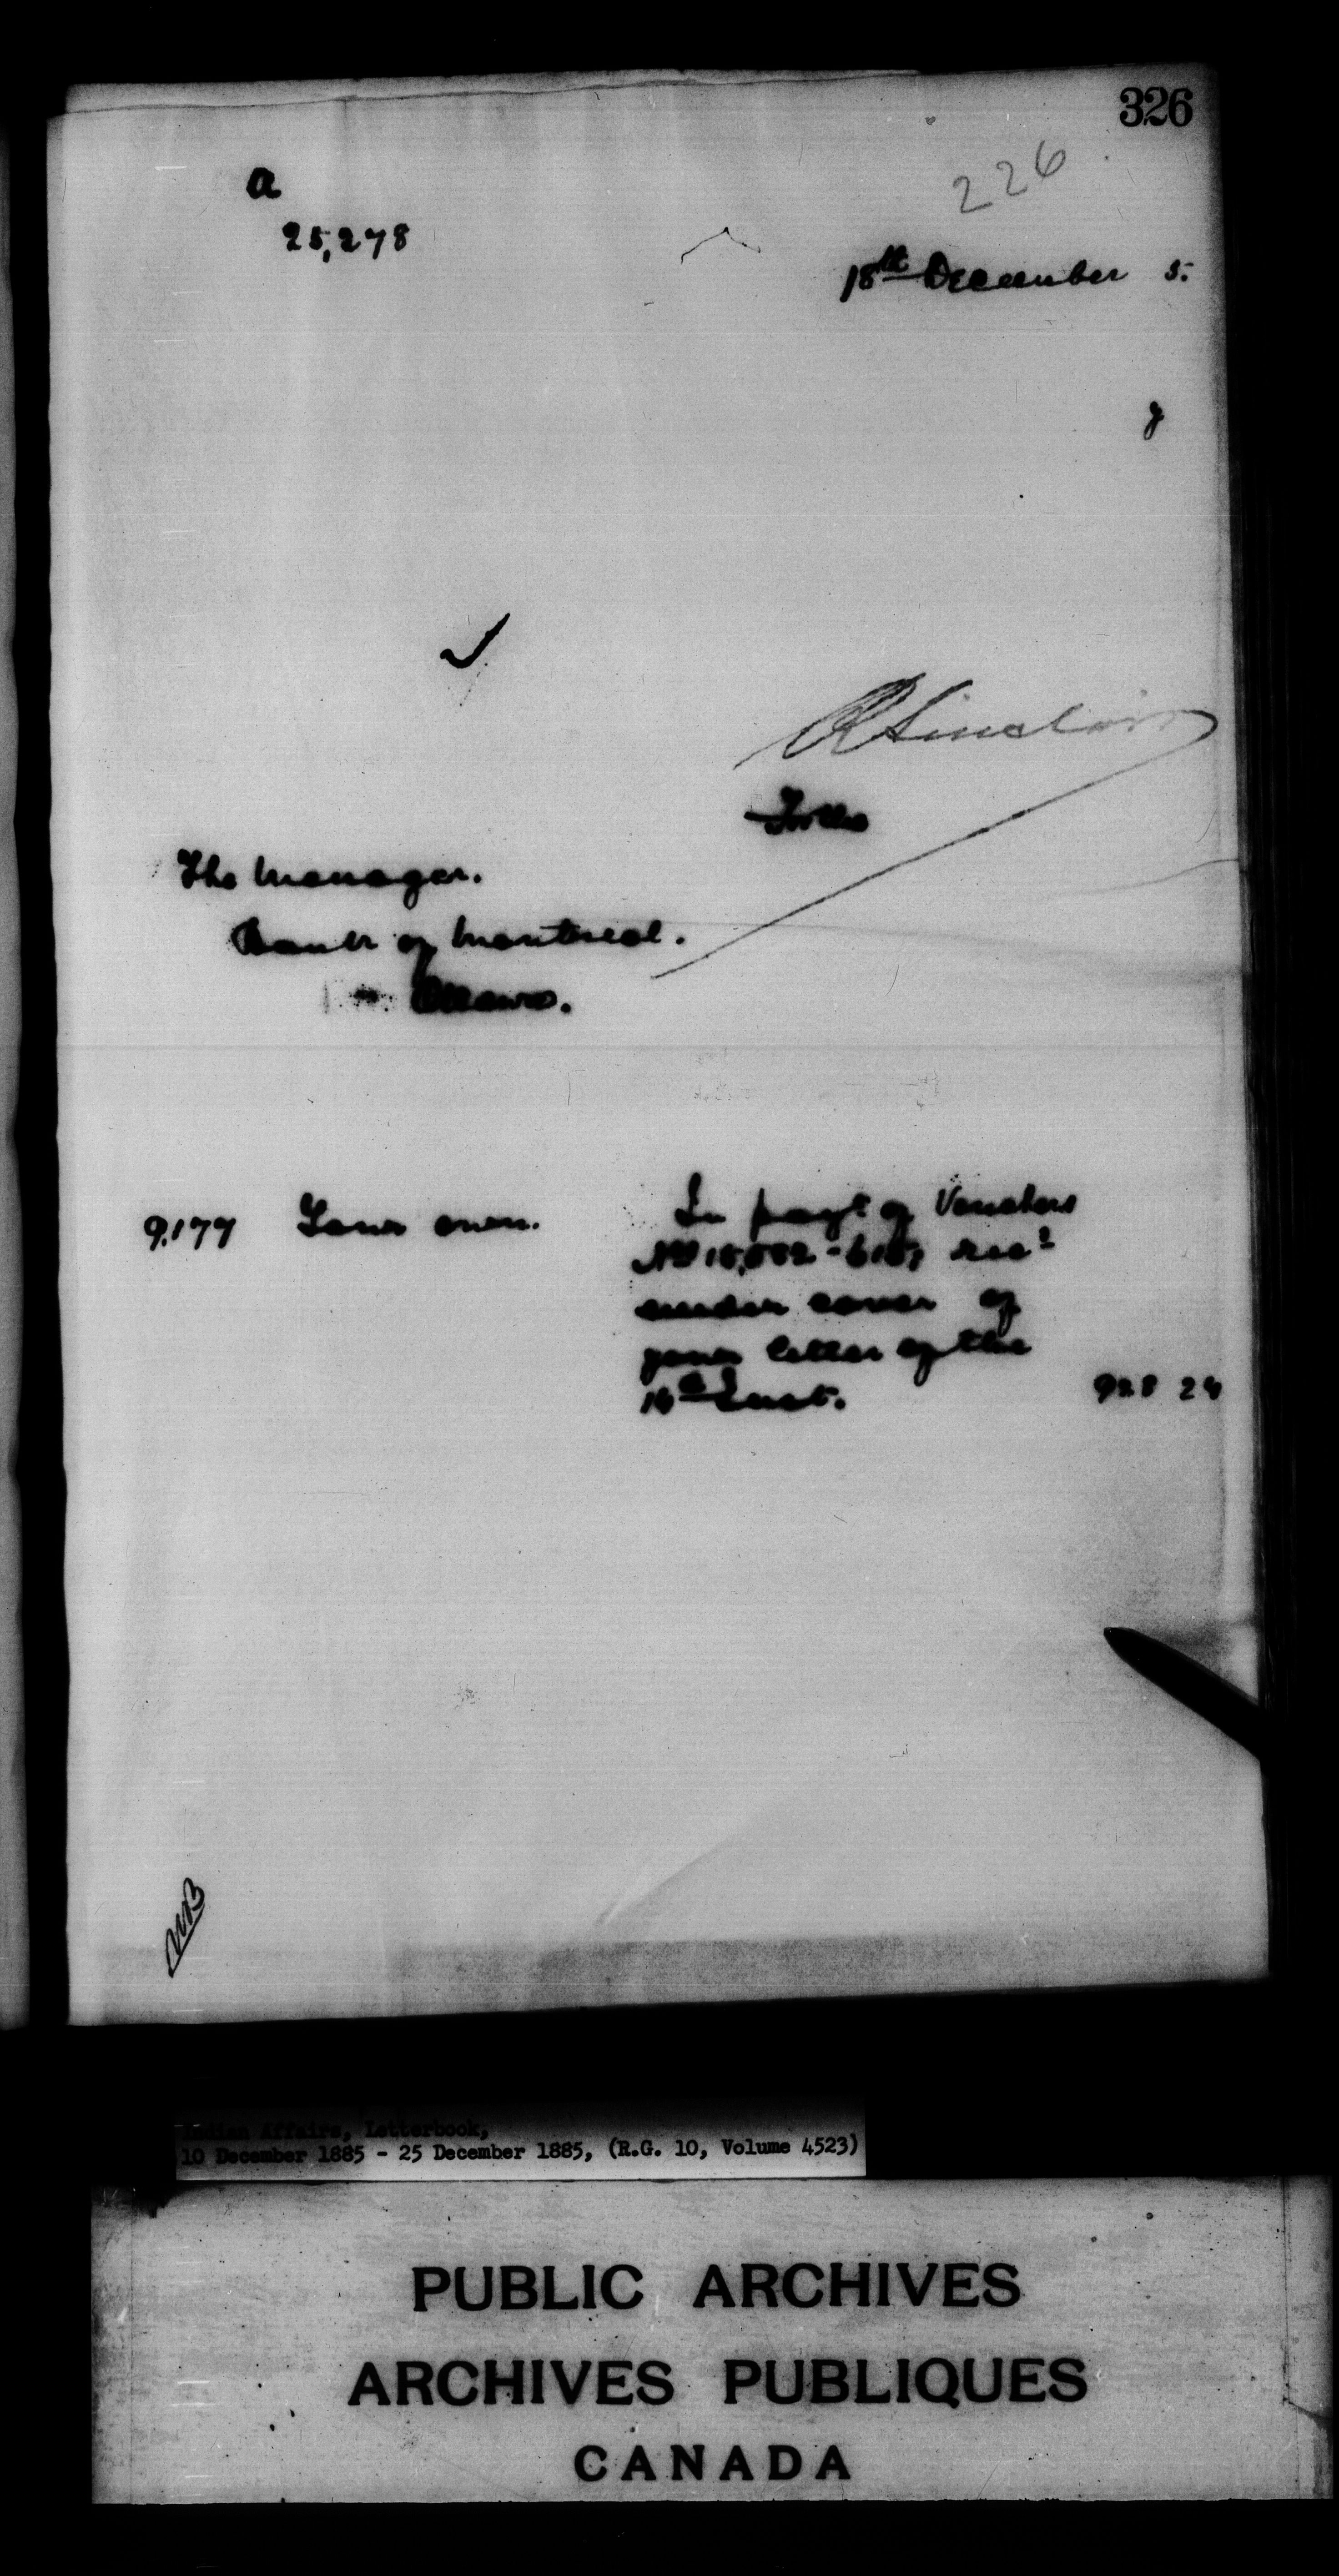 326
226
a
25,278
18th December 5.
y
R Sinclair
The Manager.
Bank of Montreal.
Ottawa.
9,177 Your own. In payt of Vouchers
under cover of
your letter of the
Inst. 928 24
WB
Indian Affairs, Letterbook,
10 December 1885 - 25 December 1885, (R.G. 10, Volume 4523)
PUBLIC ARCHIVES
ARCHIVES PUBLIQUES
CANADA